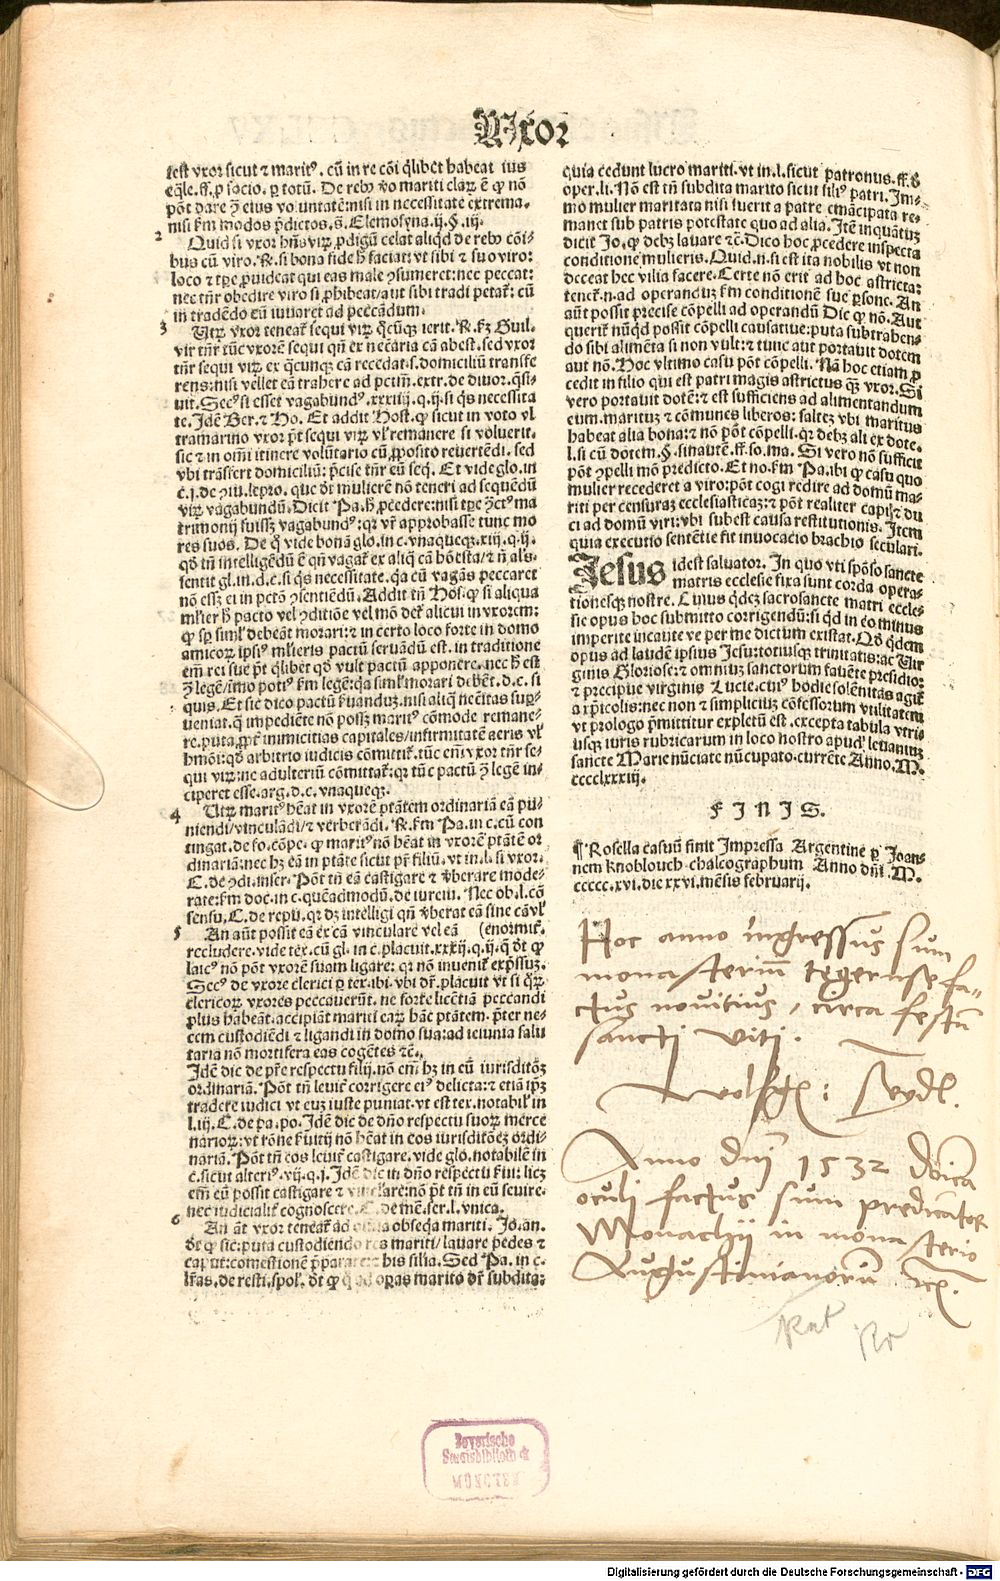 Uxor
test vxor sicut ⁊ maritꝰ. cū in re cōi q̄libet habeat ius
eq̄le. ff. ꝓ socio. ꝑ totū. De rebꝰ v̄o mariti claꝝ ē ꝙ nō
pōt dare ꝯͣ eius voluntatē: nisi in necessitate extrema.
nisi k̄m modos p̄dictos. s̄. Elemosyna. ij. §. iij.
2 Quid si vxor hn̄s virū ꝓdigū celat aliqd de rebꝰ cōi-
bus cū viro. ℟. si bona fide h̄ faciat: vt sibi ⁊ suo viro:
loco ⁊ tꝑe ꝓuideat qui eas male ꝯsumeret: nec peccat:
nec tn̄r obedire viro si ꝓhibeat/ aut sibi tradi petat: cū
in tradēdo eū iuuaret ad peccandum.
3 Utꝝ vxor teneat̄ sequi virū q̄cūqꝫ ierit. ℟. k̄ꝫ Guil.
vir tn̄r tūc vxorē sequi qn̄ ex nec̄aria cā abest. sed vxor
tn̄r sequi virū ex q̄cunqꝫ cā recedat. s. domiciliū transfe
rens: nisi vellet eā trahere ad pctm̄. extr. de diuor. q̄si-
uit. Secꝰ si esset vagabundꝰ. xxxiiij. q. ij. si q̄s necessita
te. Idē Ber. ⁊ Ho. Et addit Host. ꝙ sicut in voto vl̄
tramarino vxor p̄t sequi virū vl̄ remanere si voluerit.
sic ⁊ in om̄i itinere volūtario cū ꝓposito reuertēdi. sed
vbi transfert domiciliū: p̄cise tn̄r eū seq̄. Et vide glo. in
c. j. de ꝯiu. lepro. que dt̄ mulierē nō teneri ad sequēdū
virū vagabundū. Dicit Pa. h̄ ꝓcedere: nisi tꝑe ꝯ̄ctꝰ ma
trimonij fuissꝫ vagabundꝰ: qꝛ vr̄ approbasse tunc mo
res suos. De q̄ vide bonā glo. in c. vnaquequꝫ. xiij. q. ij.
qd̄ tn̄ intelligēdū ē qn̄ vagat̄ ex aliq̄ cā hōesta/ ⁊ n̄ als̄.
sentit gl. in. d. c. si q̄s necessitate. q̄a cū vagās peccaret
nō essꝫ ei in pctō ꝯsentiēdū. Addit tn̄ Hos̄. ꝙ si aliqua
ml̄ier h̄ pacto vel ꝯditiōe vel mō det̄ alicui in vxorem:
ꝙ sꝑ siml̄ debeāt morari: ⁊ in certo loco forte in domo
amicoꝝ ipsiꝰ ml̄ieris pactū seruādū est. in traditione
em̄ rei sue p̄t q̄libet qd̄ vult pactū apponere. nec h̄ est
ꝯͣ legē/ imo potiꝰ k̄m legē: q̄a siml̄ morari debēt. d. c. si
quis. Et sic dico pactū k̄uanduꝫ. nisi aliq̄ nec̄itas suꝑ-
ueniat. q̄ impediēte nō possꝫ maritꝰ cōmode remane-
re. puta ꝓpt̄ inimicitias capitales/ infirmitatē aeris vl̄
hmōi: qd̄ arbitrio iudicis cōmittit̄. tūc em̄ vxor tn̄r se-
qui virū: ne adulteriū cōmittat̄: qꝛ tūc pactū ꝯͣ legē in-
ciperet esse. arg. d. c. vnaquequꝫ.
4 Utꝝ maritꝰ hēat in vxorē ptātem ordinariā eā pu-
niendi/ vinculādi/ ⁊ verberādi. ℟. k̄m Pa. in c. cū con
tingat. de fo. cōpe. ꝙ maritꝰ nō hēat in vxorē ptātē or
dinariā: nec hꝫ eā in ptāte sicut pr̄ filiū. vt in. l. si vxor.
C. de ꝯdi. inser. Pōt tn̄ eā castigare ⁊ v̄berare mode-
rate: k̄m doc. in c. quēadmodū. de iureiu. Nec ob. l. cō
sensu. C. de repu. qꝛ dꝫ intelligi qn̄ v̄berat eā sine cā vl̄
(enormit̄.
5 An aūt possit eā ex cā vinculare vel eā
recludere. vide tex. cū gl. in c. placuit. xxxiij. q. ij. q̄ dt̄ ꝙ
laicꝰ nō pōt vxorē suam ligare: qꝛ nō inuenit̄ exp̄ssuꝫ.
Secꝰ de vxore clerici ꝑ tex. ibi. vbi dr̄. placuit vt si q̄ꝝ
clericoꝝ vxores peccauerūt. ne forte licētiā peccandi
plus habeāt. accipiāt mariti eaꝝ hāc ptātem. p̄ter ne-
cem custodiēdi ⁊ ligandi in domo sua: ad ieiunia salu
taria nō mortifera eas cogētes ⁊c̄.
Idē dic de pr̄e respectu filij. nō em̄ hꝫ in eū iurisditōꝫ
ordinariā. Pōt tn̄ leuit̄ corrigere eiꝰ delicta: ⁊ etiā ip̄ꝫ
tradere iudici vt euꝫ iuste puniat. vt est tex. notabil̄ in
l. iij. C. de pa. po. Idē dic de dn̄o respectu suoꝝ merce
narioꝝ: vt rōne k̄uitij nō hēat in eos iurisditōeꝫ ordi-
nariā. Pōt tn̄ eos leuit̄ castigare. vide glo. notabilē in
c. sicut alteriꝰ. vij. q. j. Idē dic in dn̄o respectu k̄ui: licꝫ
em̄ eū possit castigare ⁊ vinclare: nō p̄t tn̄ in eū seuire.
nec iudicialit̄ cognoscere. C. de mē. ser. l. vnica.
6 An āt vxor teneat̄ ad omnia obseq̄a mariti. Jo. an.
dt̄ ꝙ sic: puta custodiendo res mariti/ lauare pedes ⁊
caput: comestionē p̄parare: ⁊ his silia. Sed Pa. in c.
lr̄as. de resti. spol. dt̄ ꝙ q̄ ad oꝑas marito dr̄ subdita:
quia cedunt lucro mariti. vt in. l. sicut patronus. ff. d̄
oper. li. Nō est tn̄ subdita marito sicut filiꝰ patri. Im-
mo mulier maritata nisi fuerit a patre emācipata re-
manet sub patris potestate quo ad alia. Itē inquātuꝫ
dicit Jo. ꝙ debꝫ lauare ⁊c̄. Dico hoc ꝓcedere inspecta
conditione mulieris. Quid. n. si est ita nobilis vt non
deceat hec vilia facere. Certe nōn erit ad hoc astricta:
tenet̄. n. ad operanduꝫ k̄m conditionē sue ꝑsone. An
aūt possit precise cōpelli ad operandū Dic ꝙ nō. Aut
querit̄ nūqd possit cōpelli causatiue: puta subtrahen-
do sibi alimēta si non vult: ⁊ tunc aut portauit dotem
aut nō. Hoc vltimo casu pōt cōpelli. Nā hoc etiam ꝓ
cedit in filio qui est patri magis astrictus qꝫ vxor. Si
vero portauit dotē: ⁊ est sufficiens ad alimentandum
eum. marituꝫ ⁊ cōmunes liberos: saltez vbi maritus
habeat alia bona: ⁊ nō pōt cōpelli. qꝛ debꝫ ali ex dote.
l. si cū dotem. §. sin autē. ff. so. ma. Si vero nō sufficit
pōt ꝯpelli mō predicto. Et no. k̄m Pa. ibi ꝙ casu quo
mulier recederet a viro: pōt cogi redire ad domū ma-
riti per censuraꝫ ecclesiasticaꝫ: ⁊ pōt realiter capi: ⁊ du
ci ad domū viri: vbi subest causa restitutionis. Item
quia executio sentētie fit inuocato brachio seculari.
Jesus idest saluator. In quo vti spōso sancte
matris ecclesie fixa sunt corda opera-
tionesqꝫ nostre. Cuius qdeꝫ sacrosancte matri eccle-
sie opus hoc submitto corrigendū: si qd in eo minus
imperite incaute ve per me dictum existat. Qd̄ qdem
opus ad laudē ipsius Jesu: totiusqꝫ trinitatis: ac Vir
ginis Gloriose: ⁊ omniuꝫ sanctorum fauēte presidio:
⁊ precipue virginis Lucie. cuiꝰ hodie solēnitas agit̄
a xp̄icolis: nec non ⁊ simpliciuꝫ cōfessorum vtilitatem
vt prologo p̄mittitur expletū est. excepta tabula vtri-
usqꝫ iuris rubricarum in loco nostro apud leuantuꝫ
sancte Marie nūciate nūcupato. currēte Anno. M.
cccclxxxiij.
FINIS.
¶ Rosella casuū finit Impressa Argentine ꝑ Joan-
nem Knoblouch chalcographum Anno dn̄i. M.
ccccc. xvi. die xxvi. mēsis februarij.
Hoc anno ingressus sum
monasteriū̄ tegernsee fa=
ctus nouitius, circa festū
sancti viti.
Wolfg: Seydl.
Anno dn̄i 1532 dn̄ica
oculi factus sum predicator
Monachij in monasterio
Augustinianorū ⁊c.
Bayerische
Staatsbibliothek
MÜNCHEN
Digitalisierung gefördert durch die Deutsche Forschungsgemeinschaft - DFG